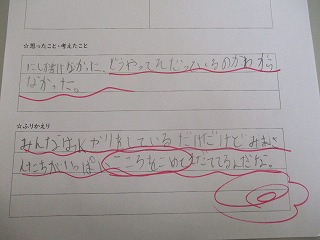 ☆思ったこと・考えたこと
にしか書けなかった。どうやってそだっているのかわから
なかった。
☆ふりかえり
みんなは水やりをしているだけだけどみまも
人たちがいっぱいこころをこめてそだててるんだね。